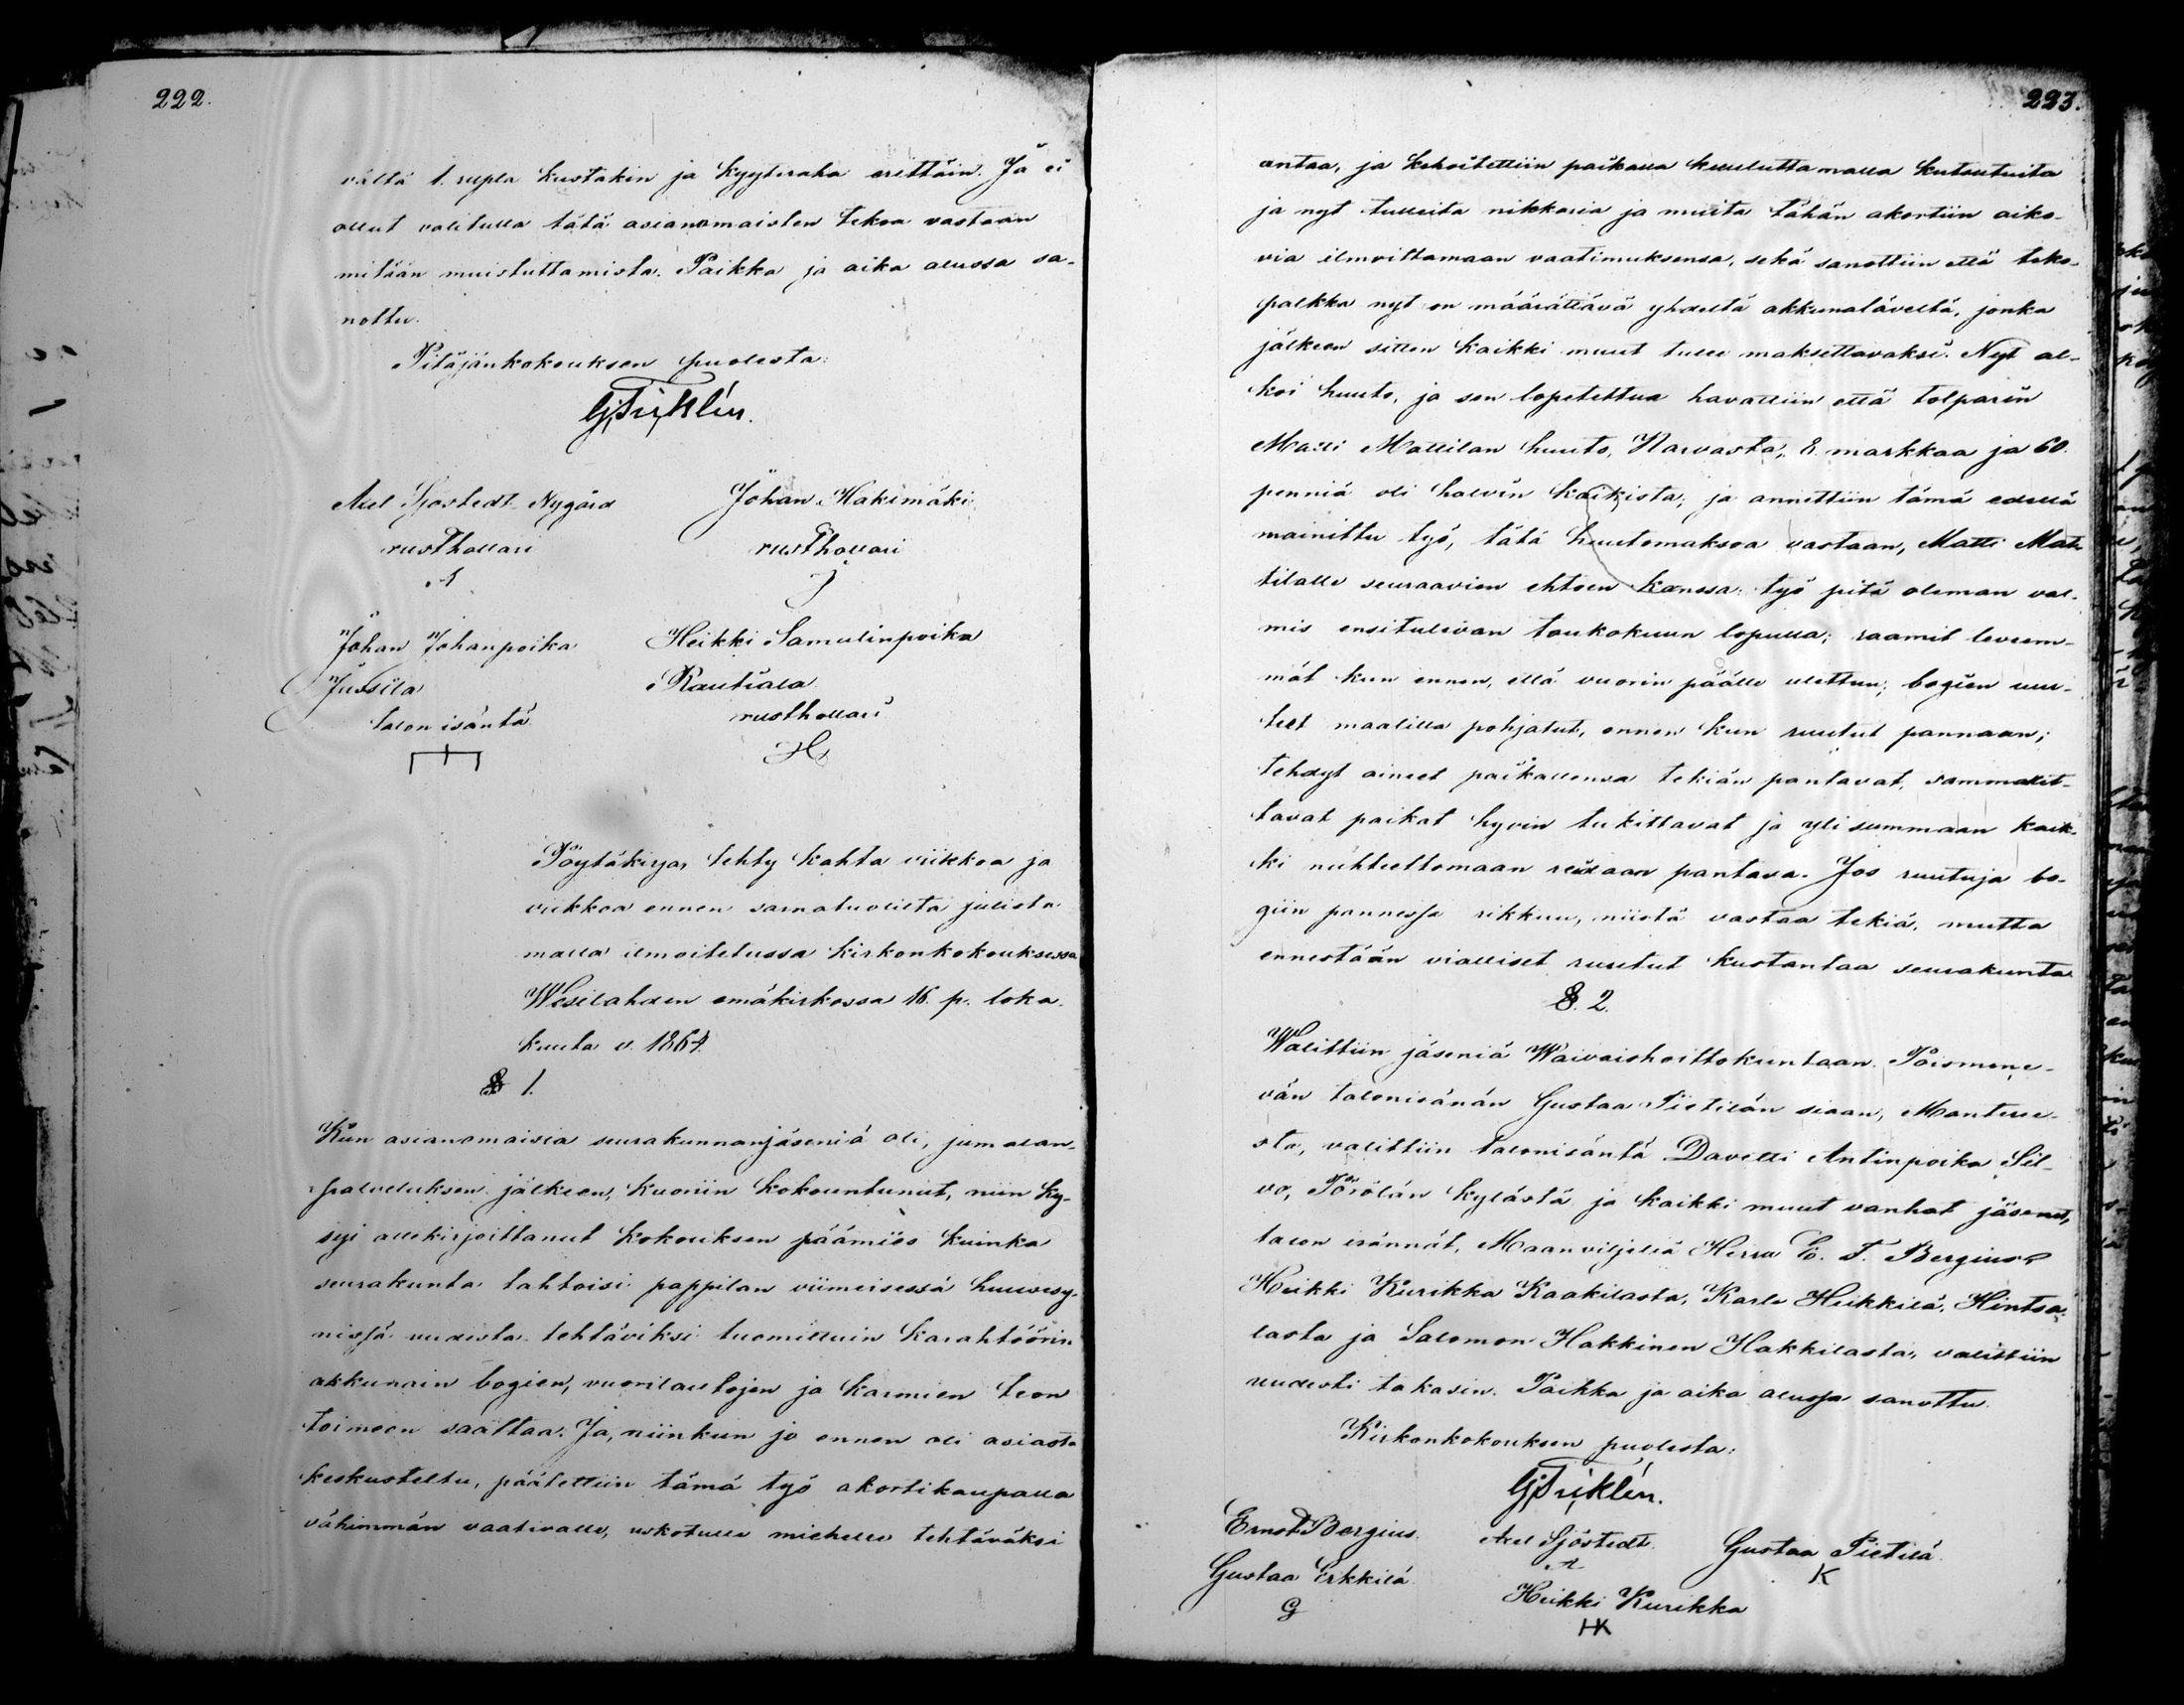 222.
vältä 1. rupla kustakin ja kyytiraha erittäin. Ja ei
ollut valitulla tätä asianomaisten tekoa vastaan
mitään muistuttamista. Paikka ja aika alussa sa-
nottu.
Pitäjänkokouksen puolesta:
Axel Sjöstedt Nygård
Johan Hakimäki
rusthollari
rusthollari
A
J
Johan Johanpoika
Heikki Samulinpoika
Jussila
Rautiala
talon isäntä
rusthollari
H
Pöytäkirja, tehty kahta viikkoa ja
viikkoa ennen saarnatuolilta julista
malla ilmoitetussa kirkonkokouksessa
Wesilahden emäkirkossa 16. p. loka-
kuuta v. 1864.
§ 1.
Kun asianomaisia seurakunnanjäseniä oli, jumalan-
palveluksen jälkeen, kuoriin kokountunut, niin ky-
syi allekirjoittanut kokouksen päämiés kuinka
seurakunta tahtoisi pappilan viimeisessä huuvesy-
nissä uudista tehtäviksi tuomittuin karahtöörin
akkunain bogien, vuorilautojen ja karmien teon
toimeen saattaa. Ja, niinkun jo ennen oli asiasta
keskusteltu, päätettiin tämä työ akortikaupalla
vähimmän vaativalle, uskotulle miehelle tehtäväksi
223.
antaa, ja kehoitettiin paikalla kuuluttamalla kutsutuita
ja nyt tulleita nikkaria ja muita tähän akortiin aiko-
via ilmoittamaan vaatimuksensa, sekä sanottiin että teko-
palkka nyt on määrättävä yhdeltä akkunaläveltä, jonka
jälkeen sitten kaikki muut tulee maksettavaksi. Nyt al-
koi huuto, ja sen lopetettua havattiin että tolparin
Matti Mattilan huuto, Narvasta, 8 markkaa ja 60.
penniä oli halvin kaikista, ja annettiin tämä edellä
mainittu työ, tätä huutomaksoa vastaan, Matti Mat-
tilalle seuraavien ehtoen kanssa: työ pitä oleman val-
mis ensitulevan toukokuun lopulla; raamit leveem-
mät kun ennen, että vuorin päälle ulettuu; bogien uu-
teet maalilla pohjatut, ennen kun ruutut pannaan;
tehdyt aineet paikallensa tekiän pantavat, sammalit-
tavat paikat hyvin tukittavat ja yli summaan kaik-
ki nuhteettomaan reilaan pantava. Jos ruutuja bo-
giin pannessa rikkuu, niistä vastaa tekiä, mutta
ennestään vialliset ruutut kustantaa seurakunta
§. 2.
Walittiin jäseniä Waivaishoittokuntaan. Poismene-
vän talonisänän Gustaa Pietilän siaan, Manteree-
sta, valittiin talonisäntä Davetti Antinpoika Sil-
vo, Pörölän kylästä ja kaikki muut vanhat jäsenet,
talon isännät, Maanviljeliä Herra E. F. Bergius
Heikki Kurikka Kaakilasta, Karle Heikkilä, Hintsa-
lasta ja Salomon Hakkinen Hakkilasta, valittiin
uudesti takasin. Paikka ja aika alussa sanottu.
Kirkonkokouksen puolesta:
Ernst Bergius.
Axel Sjöstedt.
Gustaa Pietilä.
A
K
Gustaa Erkkilä
Heikki Kurikka
G
HK